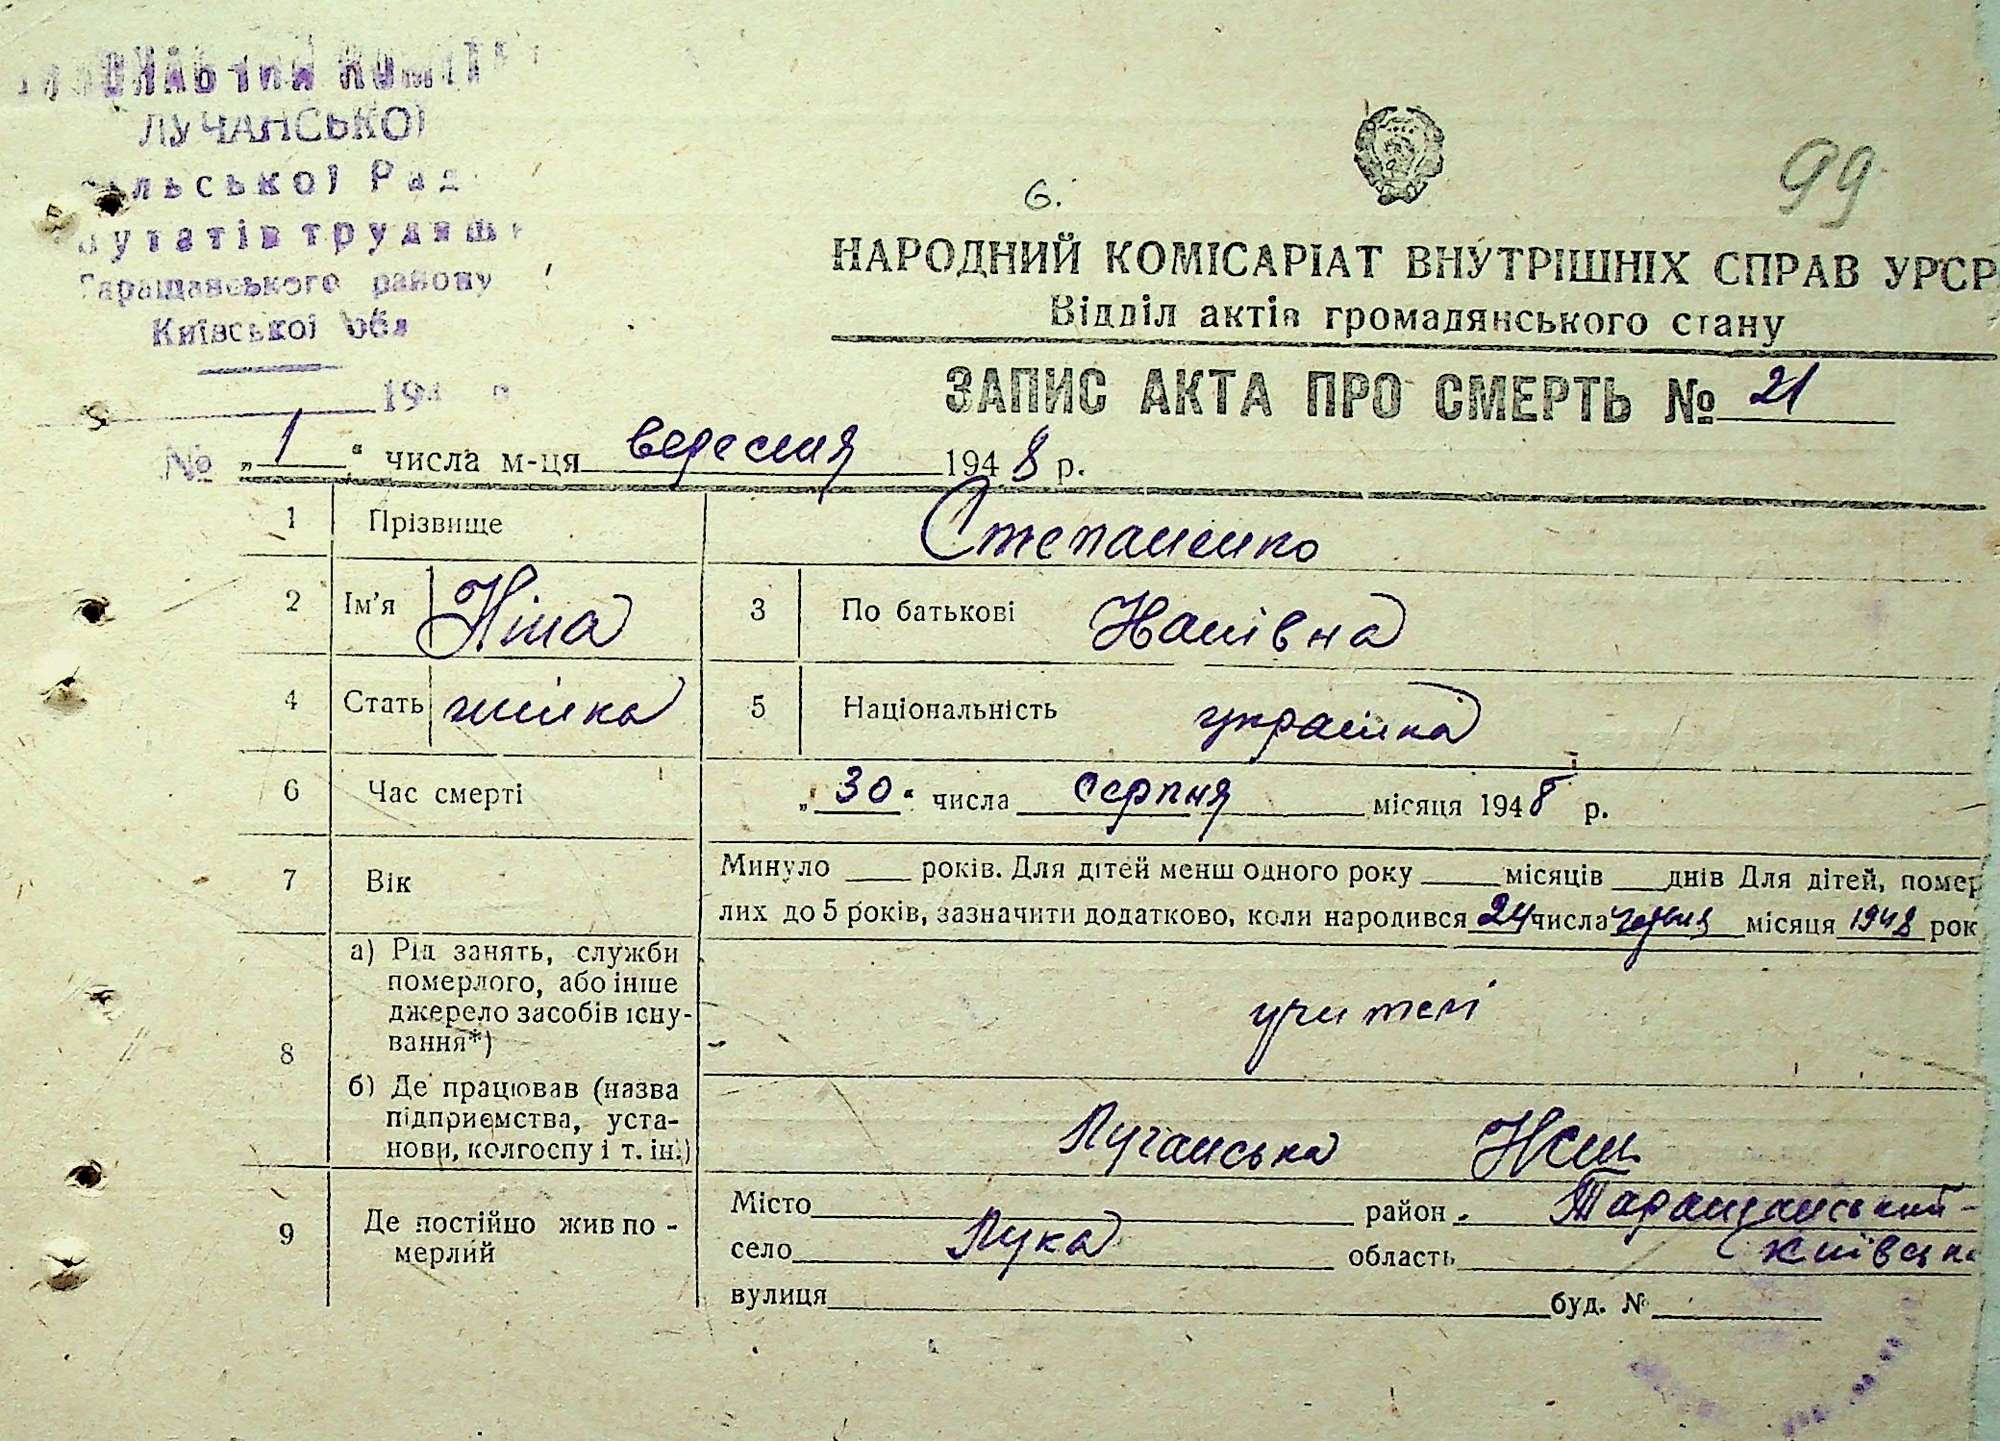 ЛУЧАНСЬКОЇ
Таращанського району
Київської обл
6.
99
НАРОДНИЙ КОМІСАРІАТ ВНУТРІШНІХ СПРАВ УРСР
Відділ актів громадянського стану
ЗАПИС АКТА ПРО СМЕРТЬ № 21
№ „1“ числа м-ця вересня 1948 р.
1 Прізвище Степаненко
2 Ім'я Ніна 3 По батькові
4 Стать жінка 5 Національність українка
6 Час смерті „30“ числа серпня місяця 1948 р.
7 Вік Минуло років. Для дітей менш одного року місяців днів Для дітей, помер
лих до 5 років, зазначити додатково, коли народився 24 числа червня місяця 1948 рок
8 а) Рід занять, служби
померлого, або інше
джерело засобів існу-
вання*)
учителі
б) Де працював (назва
підприємства, уста-
нови, колгоспу і т. ін.)
Лучанська НСШ
9 Де постійно жив по-
мерлий
Місто район Таращанський
село Лука область Київська
вулиця буд. №